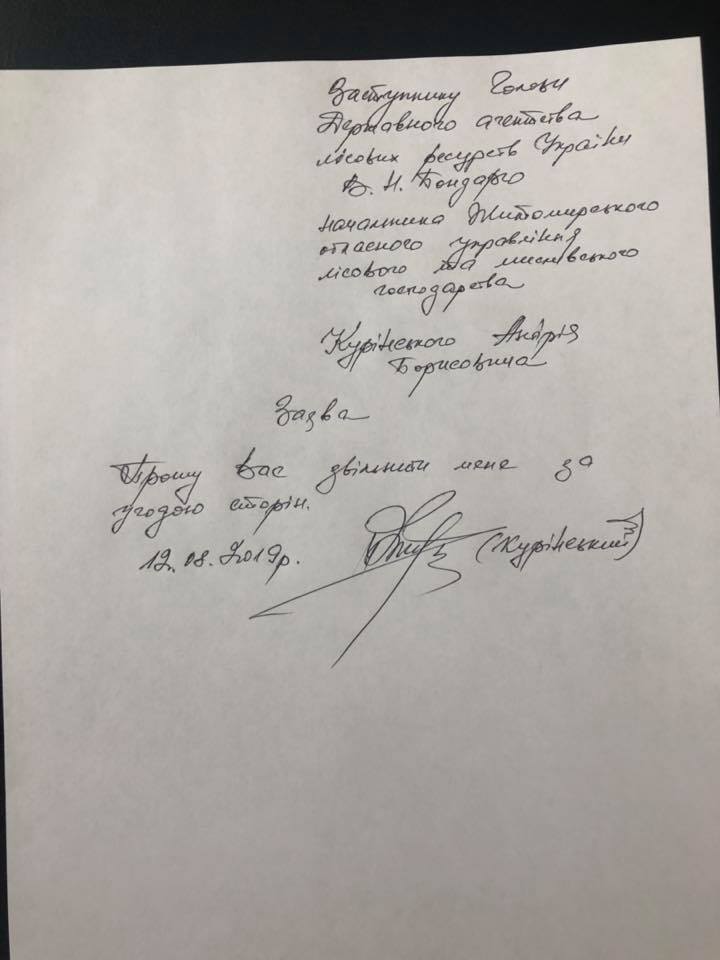 Заступнику Голови
Державного агентства
лісових ресурсів України
В. Н. Бондарю
начальника Житомирського
обласного управління
лісового та мисливського
господарства
Курінського Андрія
Борисовича
Заява
Прошу Вас звільнити мене за
угодою сторін.
12.08.2019р. (Курінський)